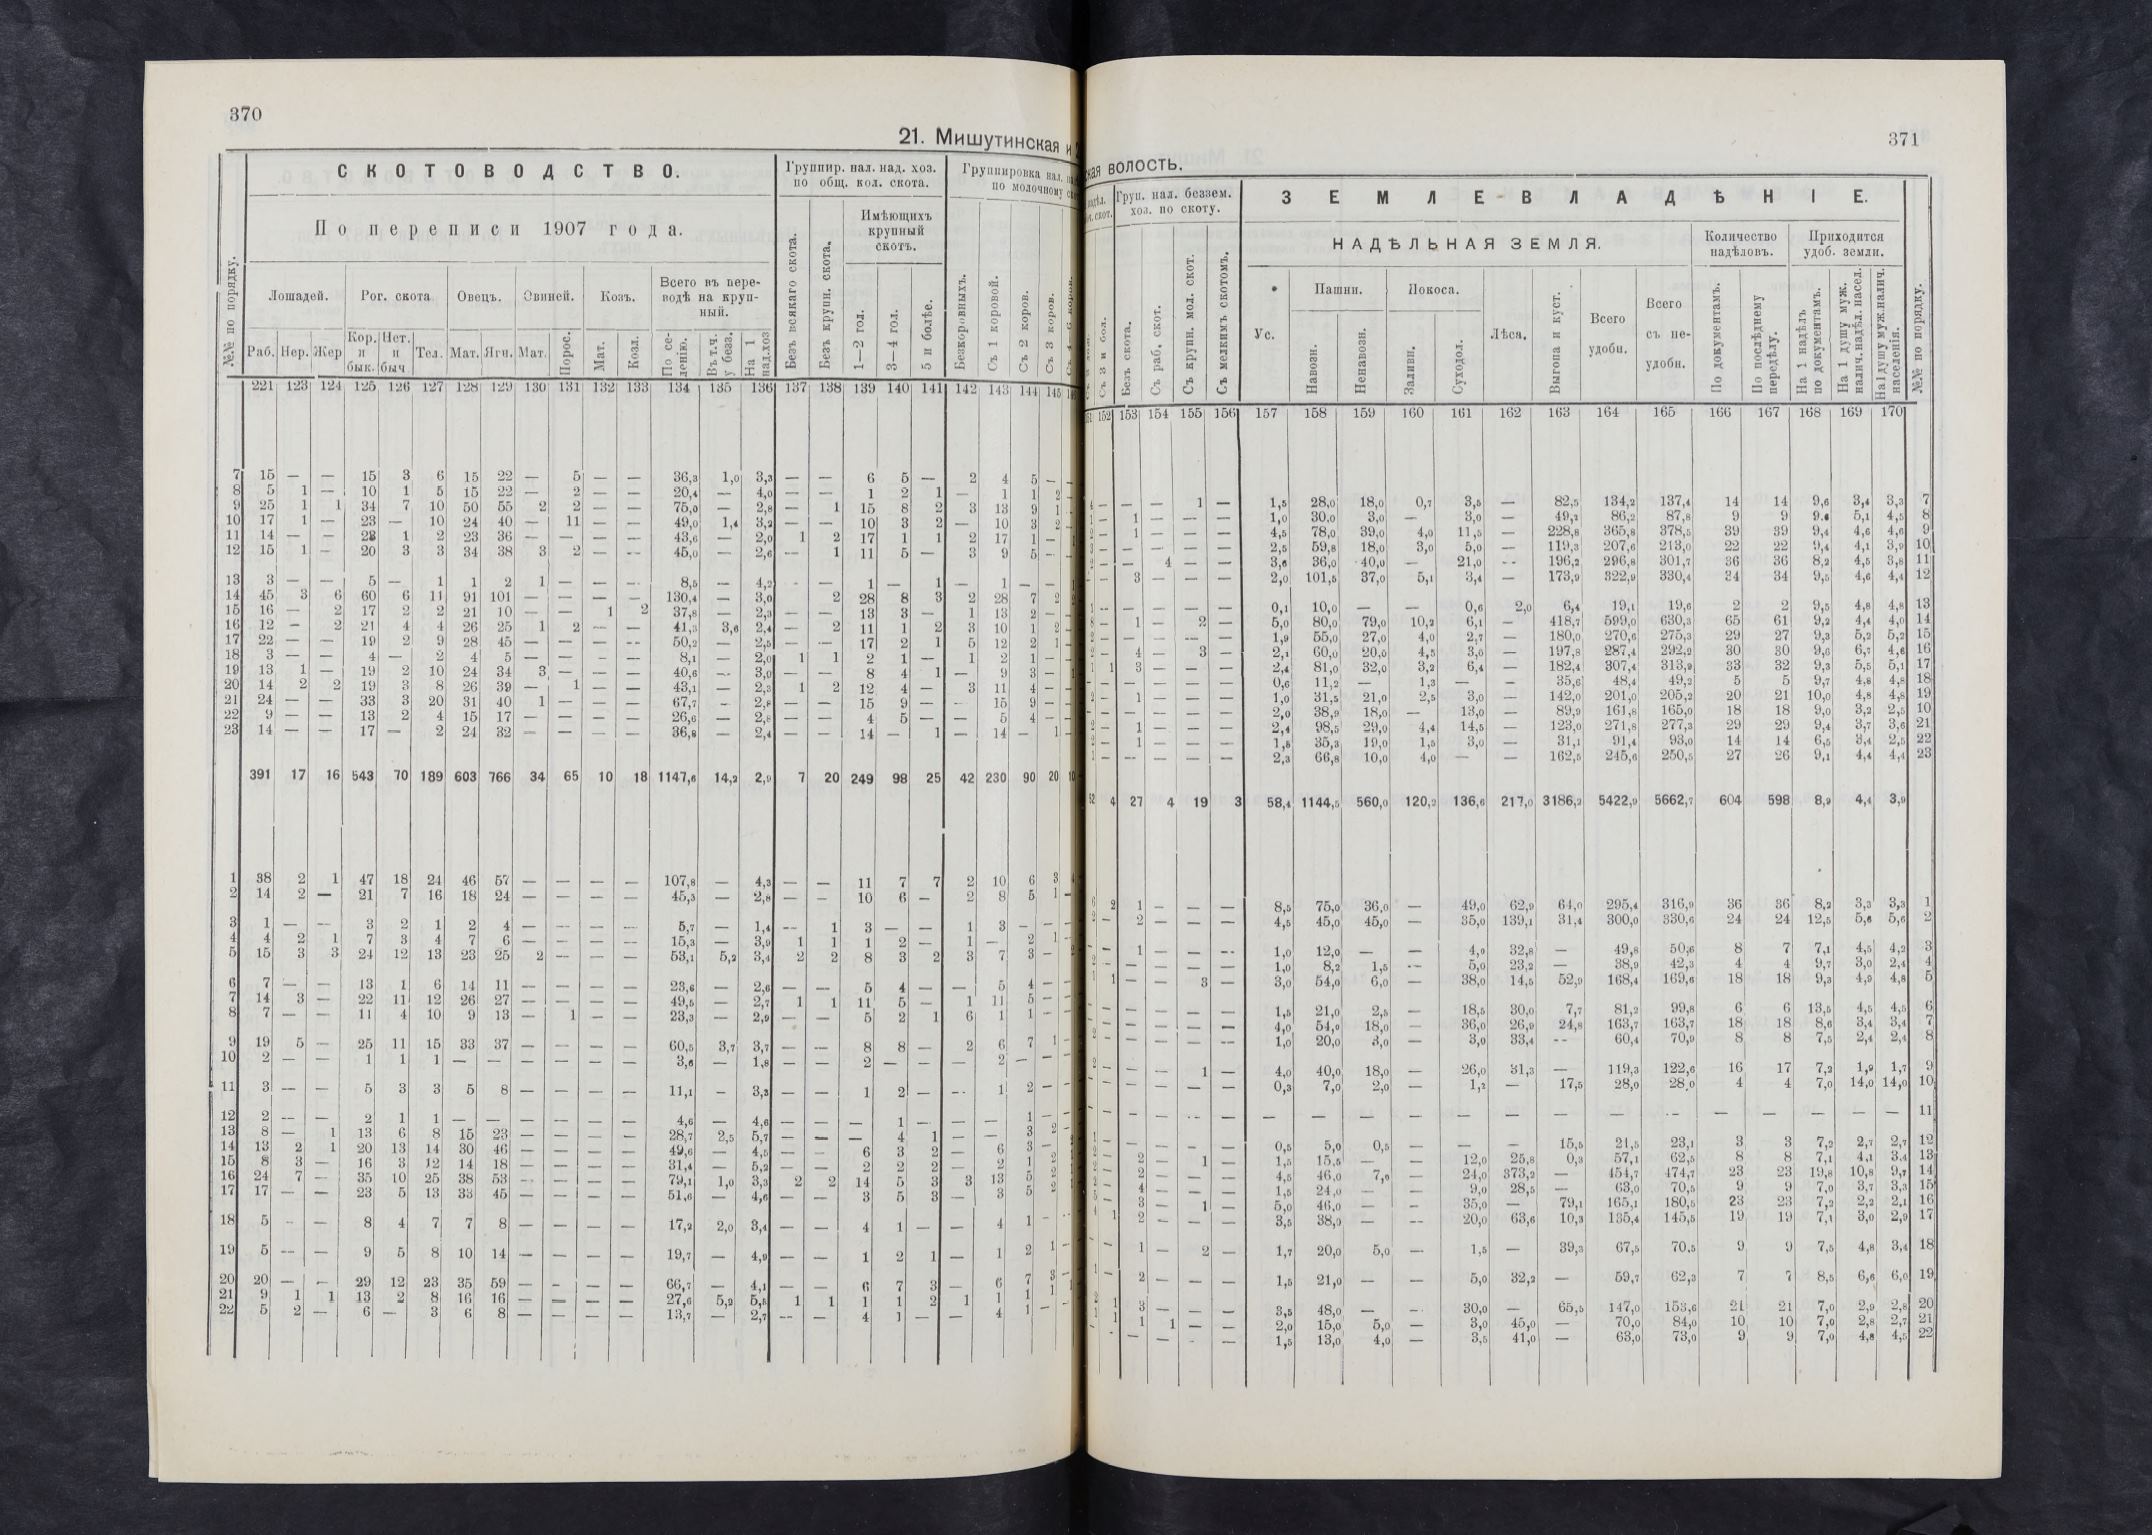 370
21. Мишутинская и
СКОТОВОДСТВО.
По переписи 1907 года.
Группир. нал. над. хоз. по общ. кол. скота.
Группировка нал.
по молочному
Имѣющихъ крупный скотъ.
№№ по порядку.
Лошадей. Рог. скота Овецъ. Свиней. Козъ. Всего въ переводѣ на крупный.
Раб. Нер. Жер Кор. и бык. Нет. и быч Тел. Мат. Ягн. Мат. Порос. Мат. Козл. По селенію. Въ т.ч. у безз. На 1 над.хоз
Безъ всякаго скота. Безъ крупн. скота. 1—2 гол. 3—4 гол. 5 и болѣе. Безкоровныхъ. Съ 1 коровой. Съ 2 коров. Съ 3 коров.
221 123 124 125 126 127 128 129 130 131 132 133 134 135 136 137 138 139 140 141 142 143 144 145
7 15 — — 15 3 6 15 22 — 5 — — 36,3 1,0 3,3 — — 6 5 — 2 4 5 —
8 5 1 — 10 1 5 15 22 — 2 — — 20,4 — 4,0 — — 1 2 1 — 1 1 2
9 25 1 1 34 7 10 50 55 2 2 — — 75,0 — 2,8 — 1 15 8 2 3 13 9 1
10 17 1 — 23 — 10 24 40 — 11 — — 49,0 1,4 3,2 — — 10 3 2 — 10 3 2
11 14 — — 28 1 2 23 36 — — — — 43,6 — 2,0 1 2 17 1 1 2 17 1 —
12 15 1 — 20 3 3 34 38 3 2 — — 45,0 — 2,6 — 1 11 5 — 3 9 5 —
13 3 — — 5 — 1 1 2 1 — — — 8,5 — 4,2 — — 1 — 1 — 1 — —
14 45 3 6 60 6 11 91 101 — — — — 130,4 — 3,0 2 28 8 3 2 28 7 2
15 16 — 2 17 2 2 21 10 — — 1 2 37,8 — 2,3 — — 13 3 — 1 13 2 —
16 12 — 2 21 4 4 26 25 1 2 — — 41,3 3,6 2,4 — 2 11 1 2 3 10 1 2
17 22 — — 19 2 9 28 45 — — — — 50,2 — 2,5 — — 17 2 1 5 12 2 1
18 3 — — 4 — 2 4 5 — — — — 8,1 — 2,0 1 1 2 1 — 1 2 1 —
19 13 1 — 19 2 10 24 34 3 — — — 40,6 — 3,0 — — 8 4 1 — 9 3 —
20 14 2 2 19 3 8 26 39 — 1 — — 43,1 — 2,3 1 2 12 4 — 3 11 4 —
21 24 — — 33 3 20 31 40 1 — — — 67,7 — 2,8 — — 15 9 — — 15 9 —
22 9 — — 13 2 4 15 17 — — — — 26,6 — 2,8 — — 4 5 — — 5 4 —
23 14 — — 17 — 2 24 32 — — — — 36,8 — 2,4 — — 14 — 1 — 14 — 1
391 17 16 543 70 189 603 766 34 65 10 18 1147,6 14,2 2,9 7 20 249 98 25 42 230 90 20 10
1 38 2 1 47 18 24 46 57 — — — — 107,8 — 4,3 — — 11 7 7 2 10 6 3
2 14 2 — 21 7 16 18 24 — — — — 45,3 — 2,8 — — 10 6 — 2 8 5 1
3 1 — — 3 2 1 2 4 — — — — 5,7 — 1,4 — 1 3 — — 1 3 — —
4 4 2 1 7 3 4 7 6 — — — — 15,3 — 3,9 1 1 1 2 — 1 — 2 1
5 15 3 3 24 12 13 23 25 2 — — — 53,1 5,2 3,4 2 2 8 3 2 3 7 3 —
6 7 — — 13 1 6 14 11 — — — — 23,6 — 2,6 — — 5 4 — — 5 4 —
7 14 3 — 22 11 12 26 27 — — — — 49,5 — 2,7 1 1 11 5 — 1 11 5 —
8 7 — — 11 4 10 9 13 — 1 — — 23,3 — 2,9 — — 5 2 1 6 1 1 —
9 19 5 — 25 11 15 33 37 — — — — 60,5 3,7 3,7 — — 8 8 — 2 6 7 1
10 2 — — 1 1 1 — — — — — — 3,6 — 1,8 — — 2 — — — 2 — —
11 3 — — 5 3 3 5 8 — — — — 11,1 — 3,3 — — 1 2 — — 1 2 —
12 2 — — 2 1 1 — — — — — — 4,6 — 4,6 — — — 1 — — — 1 —
13 8 — 1 13 6 8 15 23 — — — — 28,7 2,5 5,7 — — — 4 1 — — 3 2
14 13 2 1 20 13 14 30 46 — — — — 49,6 — 4,5 — — 6 3 2 — 6 3 —
15 8 3 — 16 3 12 14 18 — — — — 31,4 — 5,2 — — 2 2 2 — 2 1 2
16 24 7 — 35 10 25 38 53 — — — — 79,1 1,0 3,3 2 2 14 5 3 3 13 5 2
17 17 — — 23 5 13 33 45 — — — — 51,6 — 4,6 — — 3 5 3 — 3 5 2
18 5 — — 8 4 7 7 8 — — — — 17,2 2,0 3,4 — — 4 1 — — 4 1 —
19 5 — — 9 5 8 10 14 — — — — 19,7 — 4,9 — — 1 2 1 — 1 2 1
20 20 — — 29 12 23 35 59 — — — — 66,7 — 4,1 — — 6 7 3 — 6 7 3
21 9 1 1 13 2 8 16 16 — — — — 27,6 5,2 5,5 1 1 1 1 2 1 1 1 1
22 5 2 — 6 — 3 6 8 — — — — 13,7 — 2,7 — — 4 1 — — 4 1 —
371
ская волость.
Груп. нал. беззем. хоз. по скоту.
ЗЕМЛЕВЛАДѢНІЕ.
НАДѢЛЬНАЯ ЗЕМЛЯ.
Количество надѣловъ.
Приходится удоб. земли.
Съ 3 и бол. Безъ скота. Съ раб. скот. Съ крупн. мол. скот. Съ мелкимъ скотомъ.
Ус. Пашни. Навозн. Ненавозн. Покоса. Заливн. Суходол. Лѣса. Выгона и куст. Всего удобн. Всего съ неудобн.
По документамъ. По послѣднему передѣлу. На 1 надѣлъ по документамъ. На 1 душу муж. налич. надѣл. насел. На 1 душу муж. налич. населенія. №№ по порядку.
152 153 154 155 156 157 158 159 160 161 162 163 164 165 166 167 168 169 170
— — 1 — 1,5 28,0 18,0 0,7 3,5 — 82,5 134,2 137,4 14 14 9,6 3,4 3,3 7
1 — — — 1,0 30,0 3,0 — 3,0 — 49,2 86,2 87,8 9 9 9. 5,1 4,5 8
1 — — — 4,5 78,0 39,0 4,0 11,5 — 228,8 365,8 378,5 39 39 9,4 4,6 4,6 9
— — — — 2,5 59,8 18,0 3,0 5,0 — 119,3 207,6 213,0 22 22 9,4 4,1 3,9 10
— 4 — — 3,6 36,0 40,0 — 21,0 — 196,2 296,8 301,7 36 36 8,2 4,5 3,8 11
3 — — — 2,0 101,5 37,0 5,1 3,4 — 173,9 322,9 330,4 34 34 9,5 4,6 4,4 12
— — — — 0,1 10,0 — — 0,6 2,0 6,4 19,1 19,6 2 2 9,5 4,8 4,8 13
1 — 2 — 5,0 80,0 79,0 10,2 6,1 — 418,7 599,0 630,3 65 61 9,2 4,4 4,0 14
— — — — 1,9 55,0 27,0 4,0 2,7 — 180,0 270,6 275,3 29 27 9,3 5,2 5,2 15
4 — 3 — 2,1 60,0 20,0 4,5 3,0 — 197,8 287,4 292,2 30 30 9,6 6,7 4,6 16
1 3 — — — 2,4 81,0 32,0 3,2 6,4 — 182,4 307,4 313,9 33 32 9,3 5,5 5,1 17
— — — — 0,6 11,2 — 1,3 — — 35,6 48,4 49,2 5 5 9,7 4,8 4,8 18
1 — — — 1,0 31,5 21,0 2,5 3,0 — 142,0 201,0 205,2 20 21 10,0 4,8 4,8 19
— — — — 2,0 38,9 18,0 — 13,0 — 89,9 161,8 165,0 18 18 9,0 3,2 2,5 10
1 — — — 2,4 98,5 29,0 4,4 14,5 — 123,0 271,8 277,3 29 29 9,4 3,7 3,6 21
1 — — — 1,5 35,3 19,0 1,5 3,0 — 31,1 91,4 93,0 14 14 6,5 3,4 2,5 22
— — — — 2,3 66,8 10,0 4,0 — — 162,5 245,6 250,5 27 26 9,1 4,4 4,4 23
52 4 27 4 19 3 58,4 1144,5 560,0 120,2 136,6 217,0 3186,2 5422,9 5662,7 604 598 8,9 4,4 3,9
6 2 1 — — — 8,5 75,0 36,0 — 49,0 62,9 64,0 295,4 316,9 36 36 8,2 3,3 3,3 1
2 — 2 — — — 4,5 45,0 45,0 — 35,0 139,1 31,4 300,0 330,6 24 24 12,5 5,6 5,6 2
1 — — — 1,0 12,0 — — 4,0 32,8 — 49,8 50,6 8 7 7,1 4,5 4,2 3
— — — — 1,0 8,2 1,5 — 5,0 23,2 — 38,9 42,3 4 4 9,7 3,0 2,4 4
1 1 — — 3 — 3,0 54,0 6,0 — 38,0 14,5 52,9 168,4 169,6 18 18 9,3 4,9 4,8 5
— — — — 1,5 21,0 2,5 — 18,5 30,0 7,7 81,2 99,8 6 6 13,5 4,5 4,5 6
— — — — 4,0 54,0 18,0 — 36,0 26,9 24,8 163,7 163,7 18 18 8,6 3,4 3,4 7
— — — — 1,0 20,0 3,0 — 3,0 33,4 — 60,4 70,9 8 8 7,5 2,4 2,4 8
— — 1 — 4,0 40,0 18,0 — 26,0 31,3 — 119,3 122,6 16 17 7,2 1,9 1,7 9
— — — — 0,3 7,0 2,0 — 1,2 — 17,5 28,0 28,0 4 4 7,0 14,0 14,0 10
— — — — — — — — — — — — — — — — — — 11
— — — — 0,5 5,0 0,5 — — — 15,5 21,5 23,1 3 3 7,2 2,7 2,7 12
2 — 1 — 1,5 15,5 — — 12,0 25,8 0,3 57,1 62,5 8 8 7,1 4,1 3,4 13
2 — — — 4,5 46,0 7,0 — 24,0 373,2 — 454,7 474,7 23 23 19,8 10,8 9,7 14
4 — — — 1,5 24,0 — — 9,0 28,5 — 63,0 70,5 9 9 7,0 3,7 3,3 15
3 — 1 — 5,0 46,0 — — 35,0 — 79,1 165,1 180,5 23 23 7,2 2,2 2,1 16
1 2 — — — 3,5 38,0 — — 20,0 63,6 10,3 135,4 145,5 19 19 7,1 3,0 2,9 17
1 — 2 — 1,7 20,0 5,0 — 1,5 — 39,3 67,5 70,5 9 9 7,5 4,8 3,4 18
2 — — — 1,5 21,0 — — 5,0 32,2 — 59,7 62,3 7 7 8,5 6,6 6,0 19
1 3 — — — 3,5 48,0 — — 30,0 — 65,5 147,0 153,6 21 21 7,0 2,9 2,8 20
1 1 1 — — 2,0 15,0 5,0 — 3,0 45,0 — 70,0 84,0 10 10 7,0 2,8 2,7 21
— — — — 1,5 13,0 4,0 — 3,5 41,0 — 63,0 73,0 9 9 7,0 4,8 4,5 22